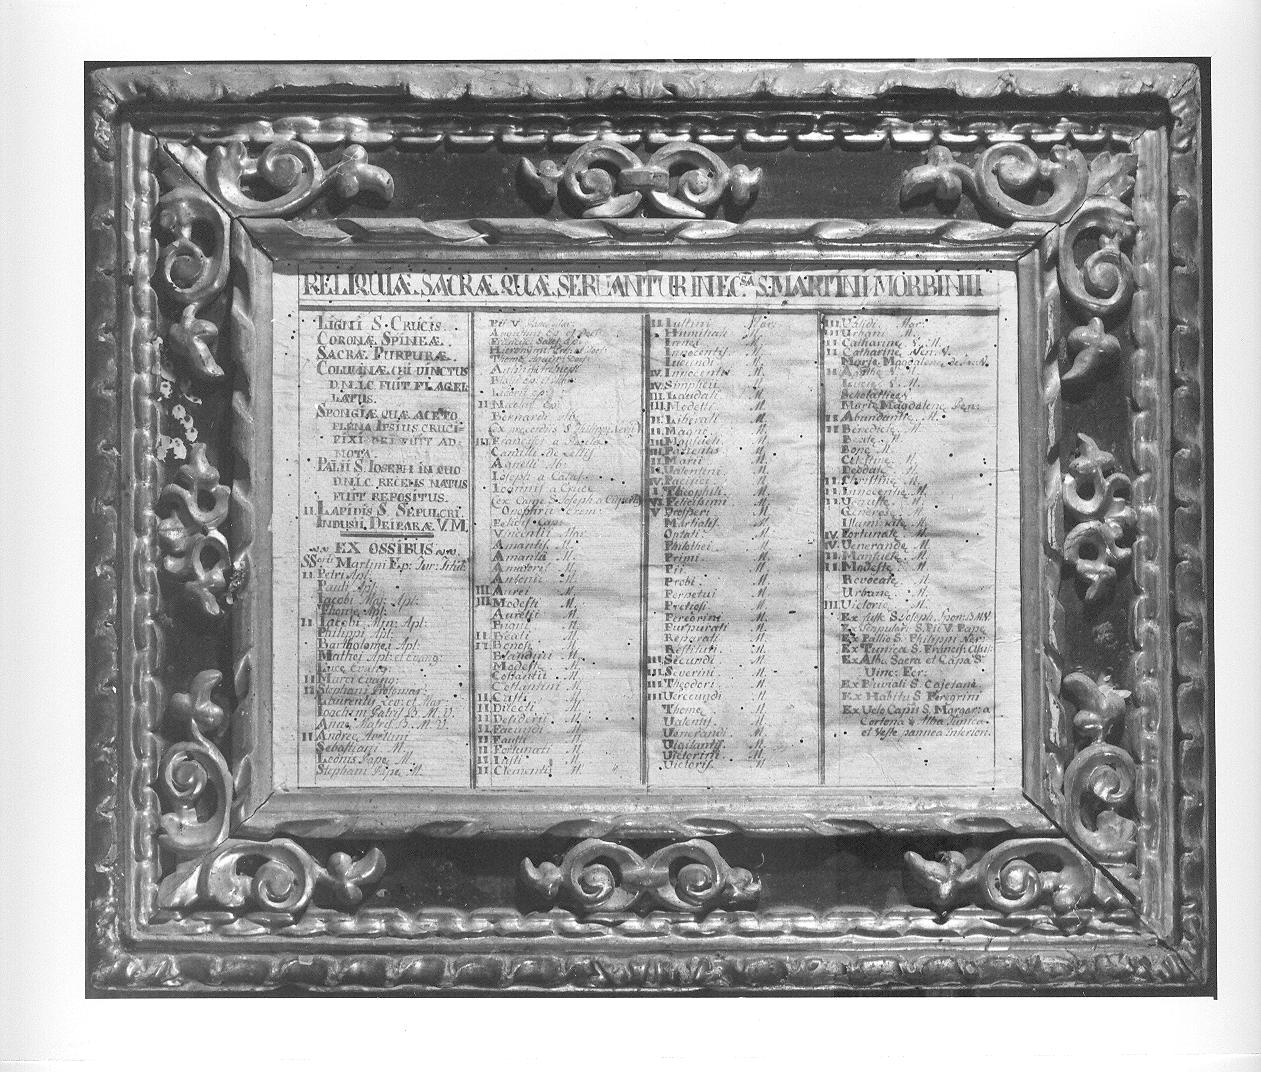 RELIQUIÆ. SACRÆ. QUÆ. SERUANTUR IN EC.SA S. MARTINI MORBINII
LIGNI S. CRUCIS.
CORONÆ SPINEÆ.
SACRÆ PURPURÆ.
COLUMNÆ CUI VINCTUS
D.N.I.C. FUIT FLAGEL
LATUS.
SPONGIÆ QUÆ ACETO
PLENA IPSIUS CRUCI-
FIXI ORI FUIT AD-
MOTA.
PALII S. IOSEPH IN QUO
D.N.I.C. RECENS NATUS
FUIT REPOSITUS.
II LAPIDIS S. SEPULCRI.
INDUSII DEIPARÆ V.M.
EX OSSIBUS
Martini Ep: Tur: Titul.
II Petri Apl.
Pauli Apl.
Iacobi Maj: Apl:
Thomæ Apl:
II Iacobi Min: Apl:
Philippi Apl:
Bartholomei Apl:
Mathei Apl: et Evang:
Luce Evang:
II Marci Evang:
II Stephani Protomar:
Laurentii Lev: et Mar:
Ioachim Patris B. M. V.
Anne Matris B. M. V.
II Andree Avellini
Sebastiani M.
Leonis Pape M.
Stephani Pape M.
Pii V. Pape
Augustini Ep. et Doct.
II Nicolai Ep:
Bernardi Ab.
Ex precordiis S. Philippi Nerii
III Francisci a Paula
Camilli de Lellis
Agnelli Ab:
Ioseph a Calas:
Ioannis a Cruce
Onophrii Erem:
Felicis Cap:
Vincentii Mar:
Amantii M.
Amanti M.
Amatoris M.
Antonii M.
III Aurei M.
III Modesti M.
Aurelii M.
II Beati M.
II Benosi M.
Blandini M.
Modesti M.
Costantii M.
Costantini M.
II Casti M.
II Dilecti M.
II Desiderii M.
II Facundi M.
II Fausti M.
II Fortunati M.
II Iusti M.
II Clementis M.
II Iustini Mar:
II Humiliati M.
Irenei M.
Innocentii M.
Iucundi M.
IV Innocentis M.
IV Simplicii M.
III Laudati M.
III Modesti M.
II Liberati M.
II Magni M.
III Mansueti M.
III Patientis M.
II Marii M.
Valentini M.
IV Pacifici M.
Theophili M.
V Prosperi M.
Martialis M.
Optati M.
Philothei M.
Primi M.
Pii M.
Probi M.
Perpetui M.
Pretiosi M.
Peregrini M.
Purpurati M.
Reparati M.
Restituti M.
III Secundi M.
III Severini M.
III Theodori M.
III Verecundi M.
Thome M.
Valentis M.
Venerandi M.
Vigilantis M.
Victorini M.
Victoris M.
III Validi Mar:
III Urbani M.
II Catharine V. M.
II Catharine Sen. V.
Marie Magdalene de Paz. V.
II Agathe V.
Lucie V. M.
Scholastice V.
Marie Magdalene Pen:
II Abundantie M.
II Benedicte M.
Beate M.
Bone M.
Celestine M.
Deodate M.
II Christine M.
II Innocentie M.
Generose M.
Illuminate M.
IV Fortunate M.
IV Venerande M.
II Mansuete M.
II Modeste M.
Revocate M.
Urbane M.
III Victorie M.
Ex Scapulari S. Pii V. Pape
Ex Pallio S. Philippi Ner:
Ex Tunica S. Francis: Assis:
Ex Alba Sacra et Capa S.
Uinc: Fer:
Ex Pluviali S. Cajetani.
Ex Habitu S. Peregrini
Ex Velo Capis S. Margar: a
Cortona & Alba Tunica
et Veste pannea inferiori.